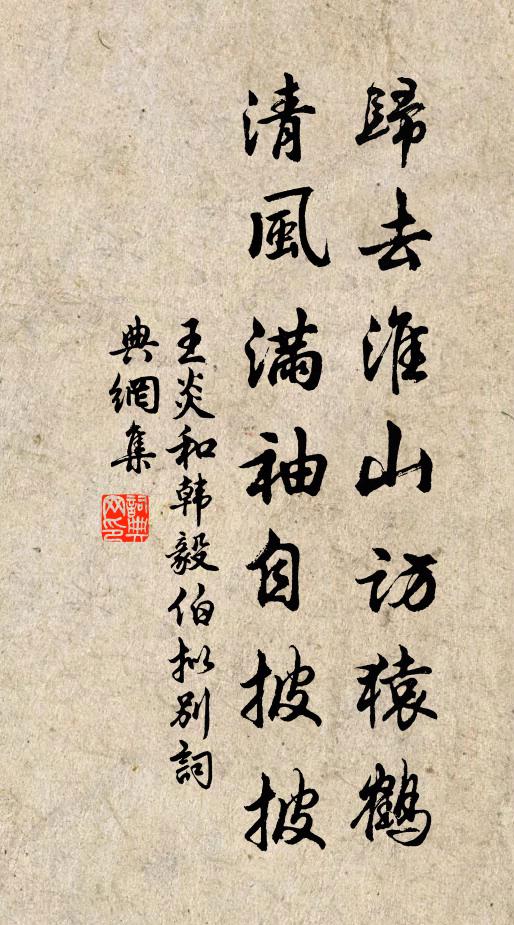 歸去淮山访猿鶴
清風滿袖自披披
王炎和韩毅伯拟别詞
典網集
詞典
网印